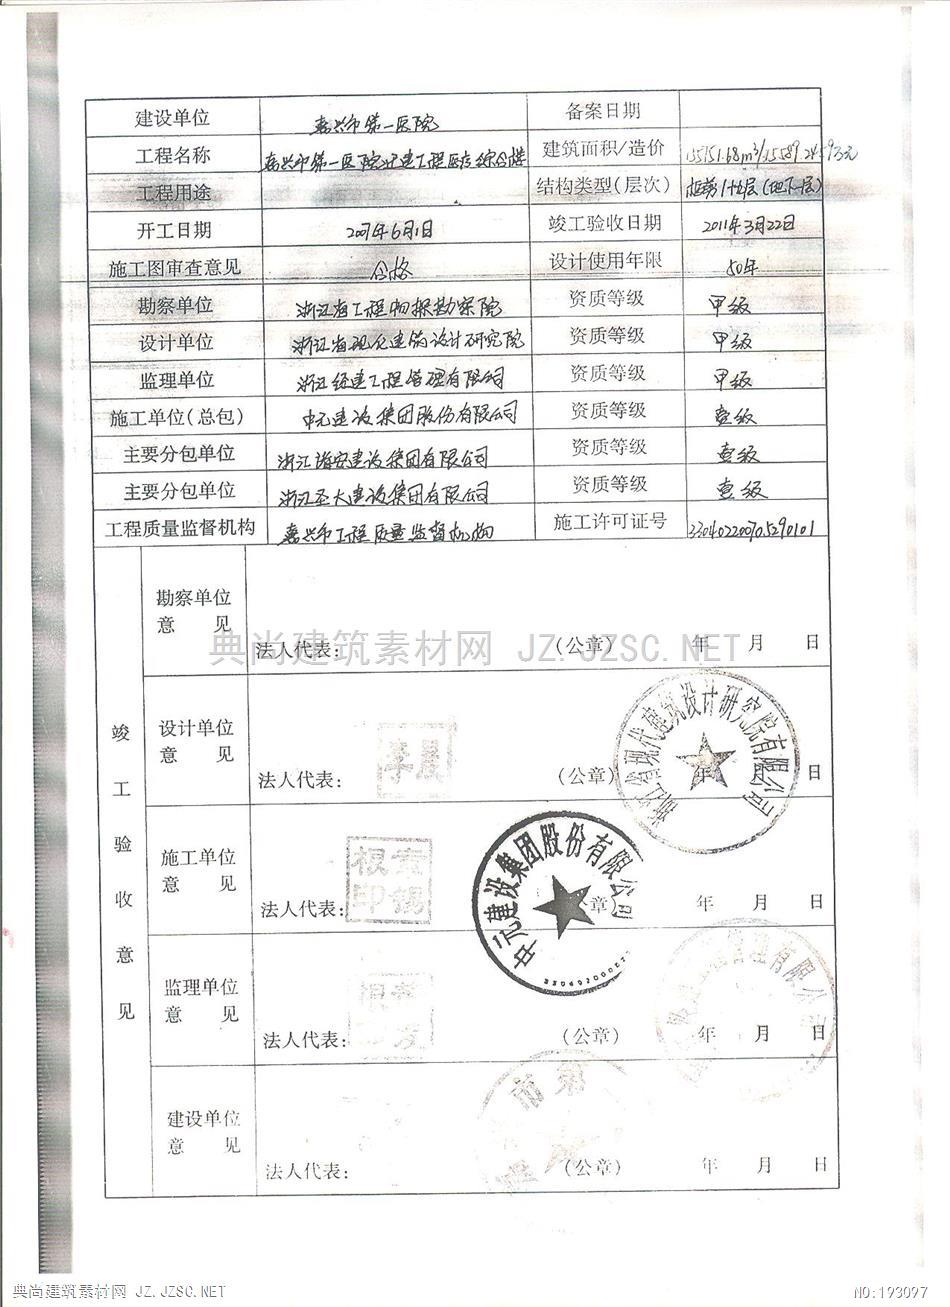 建设单位 嘉兴市第一医院 备案日期
工程名称 嘉兴市第一医院迁建工程医疗综合楼 建筑面积/造价
工程用途 结构类型(层次)
开工日期 2007年6月1日 竣工验收日期 2011年3月22日
施工图审查意见 合格 设计使用年限 50年
勘察单位 浙江省工程物探勘察院 资质等级 甲级
设计单位 浙江省现代建筑设计研究院 资质等级 甲级
监理单位 浙江经建工程管理有限公司 资质等级 甲级
施工单位(总包) 中元建设集团股份有限公司 资质等级 壹级
主要分包单位 浙江诸安建设集团有限公司 资质等级 壹级
主要分包单位 浙江圣大建设集团有限公司 资质等级 壹级
工程质量监督机构 嘉兴市工程质量监督机构 施工许可证号 330402200705290101
竣工验收意见
勘察单位
意 见
法人代表: (公章) 年 月 日
典尚建筑素材网 JZ.JZSC.NET
设计单位
意 见
法人代表: (公章) 年 月 日
浙江省现代建筑设计研究院有限公司
施工单位
意 见
法人代表: (公章) 年 月 日
中元建设集团股份有限公司
监理单位
意 见
法人代表: (公章) 年 月 日
工程管理有限公司
建设单位
意 见
法人代表: (公章) 年 月 日
市第
典尚建筑素材网 JZ.JZSC.NET
NO:193097